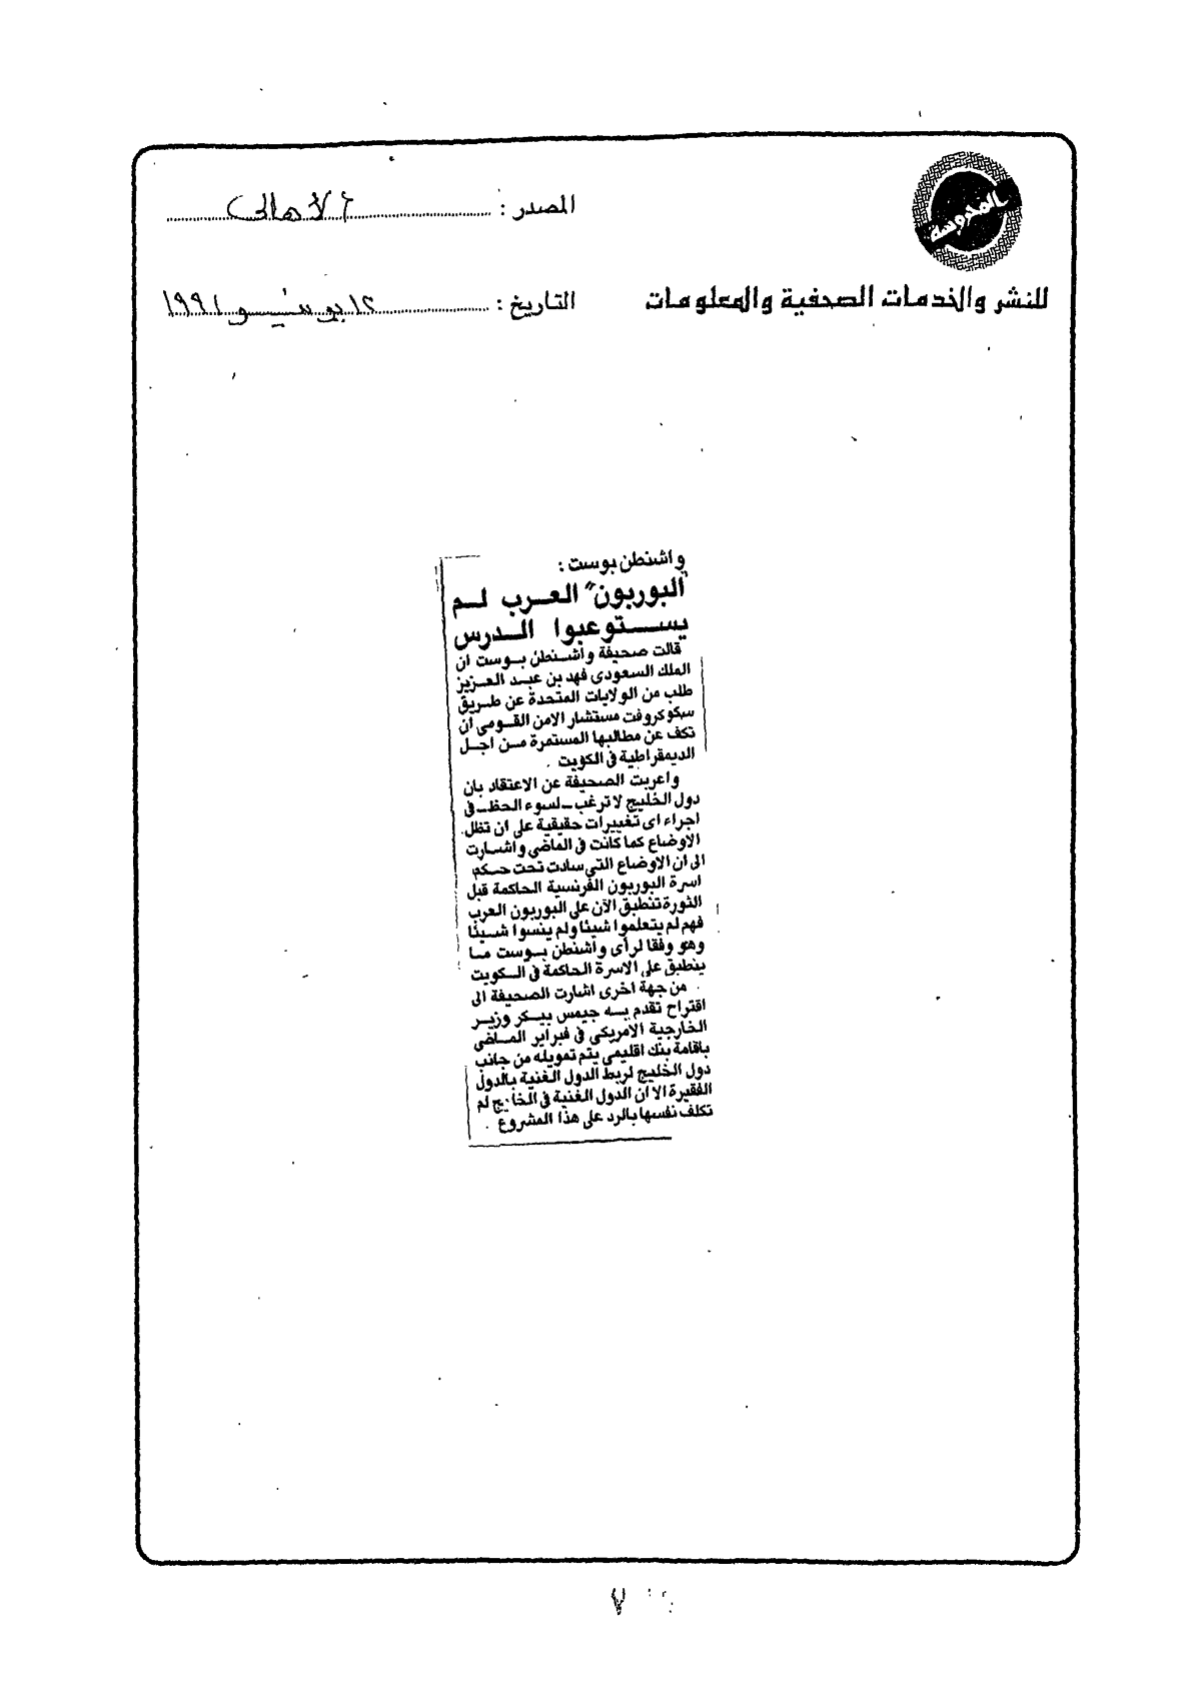 المحروسة
للنشر والخدمات الصحفية والمعلومات
المصدر : الأهالى
التاريخ : ١٢ يونيو ١٩٩١
واشنطن بوست :
"البوربون" العرب لم
يستوعبوا الدرس
قالت صحيفة واشنطن بوست ان
الملك السعودى فهد بن عبد العزيز
طلب من الولايات المتحدة عن طريق
سكوكروفت مستشار الامن القومى أن
تكف عن مطالبها المستمرة من اجل
الديمقراطية فى الكويت .
واعربت الصحيفة عن الاعتقاد بان
دول الخليج لا ترغب ــ لسوء الحظ ــ فى
اجراء اى تغييرات حقيقية على ان تظل
الاوضاع كما كانت فى الماضى واشارت
الى ان الاوضاع التى سادت تحت حكم
اسرة البوربون الفرنسية الحاكمة قبل
الثورة تنطبق الآن على البوربون العرب
فهم لم يتعلموا شيئا ولم ينسوا شيئا
وهو وفقا لرأى واشنطن بوست ما
ينطبق على الاسرة الحاكمة فى الكويت
. من جهة اخرى اشارت الصحيفة الى
اقتراح تقدم به جيمس بيكر وزير
الخارجية الأمريكى فى فبراير الماضى
باقامة بنك اقليمى يتم تمويله من جانب
دول الخليج لربط الدول الغنية بالدول
الفقيرة الا ان الدول الغنية فى الخليج لم
تكلف نفسها بالرد على هذا المشروع .
٧